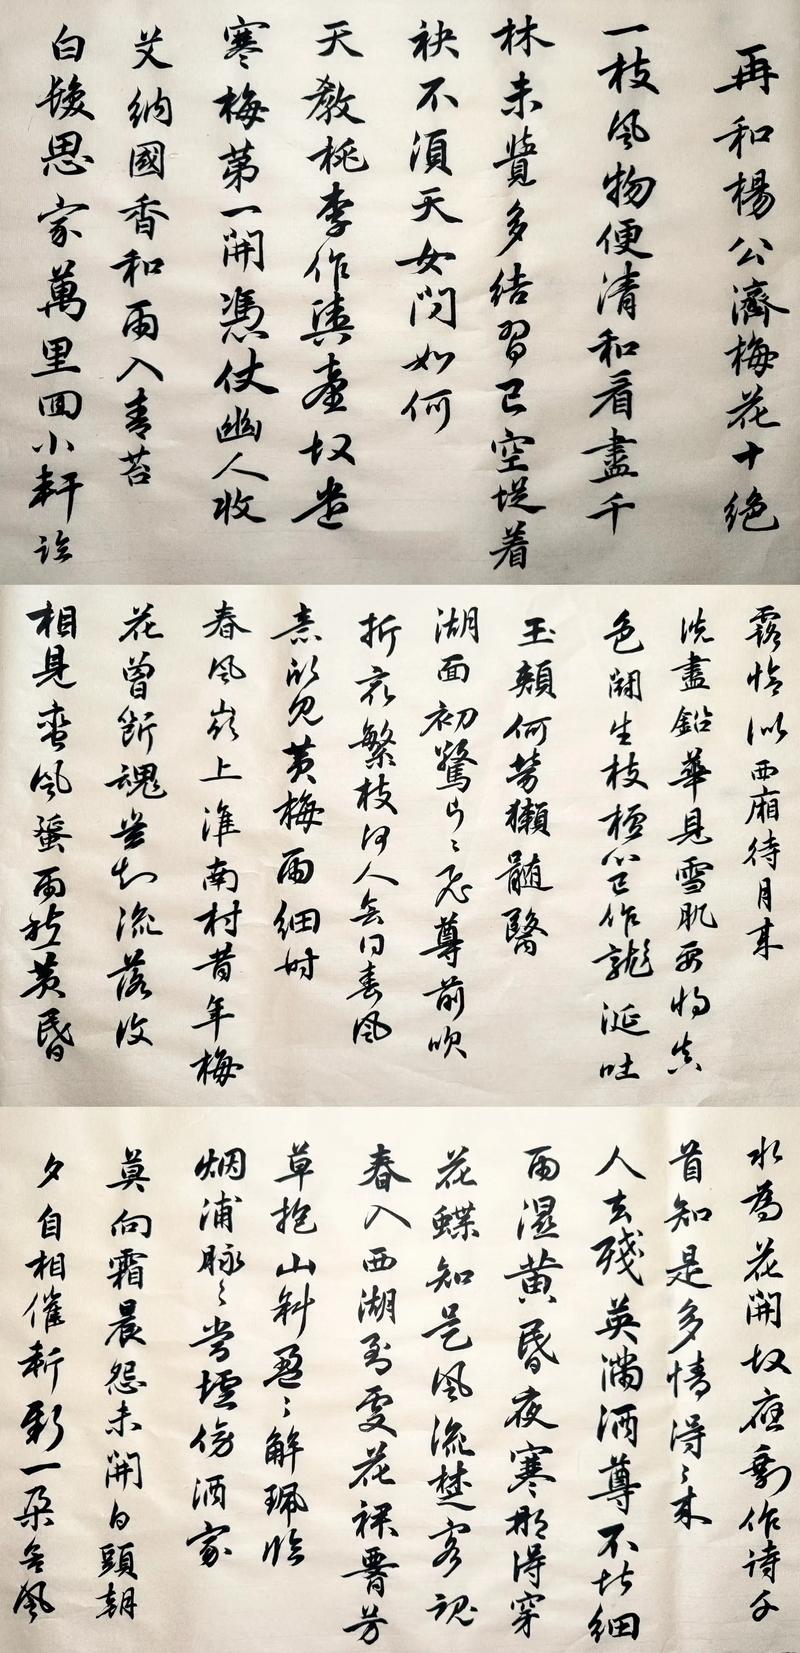 再和楊公濟梅花十絕
一枝風物便清和看盡千
林未覺多結習已空從着
袂不須天女問如何
天教桃李作輿臺故遣
寒梅第一開憑仗幽人收
艾納國香和雨入青苔
白髮思家萬里回小軒臨
露恰似西廂待月來
洗盡鉛華見雪肌要將真
色鬪生枝檀心已作龍涎吐
玉頰何勞獺髓醫
湖面初驚片々飛尊前吹
折最繁枝何人會得春風
意怕見黃梅雨細時
春風嶺上淮南村昔年梅
花曾斷魂豈知流落復
相見蠻風蜑雨愁黃昏
水為花開故應剩作詩千
首知是多情得々來
人去殘英滿酒尊不堪細
雨濕黃昏夜寒那得穿
花蝶知是風流楚客魂
春入西湖到處花裙腰芳
草抱山斜盈々解珮臨
烟浦脉々當壚傍酒家
莫向霜晨怨未開白頭朝
夕自相催斬新一朵含風